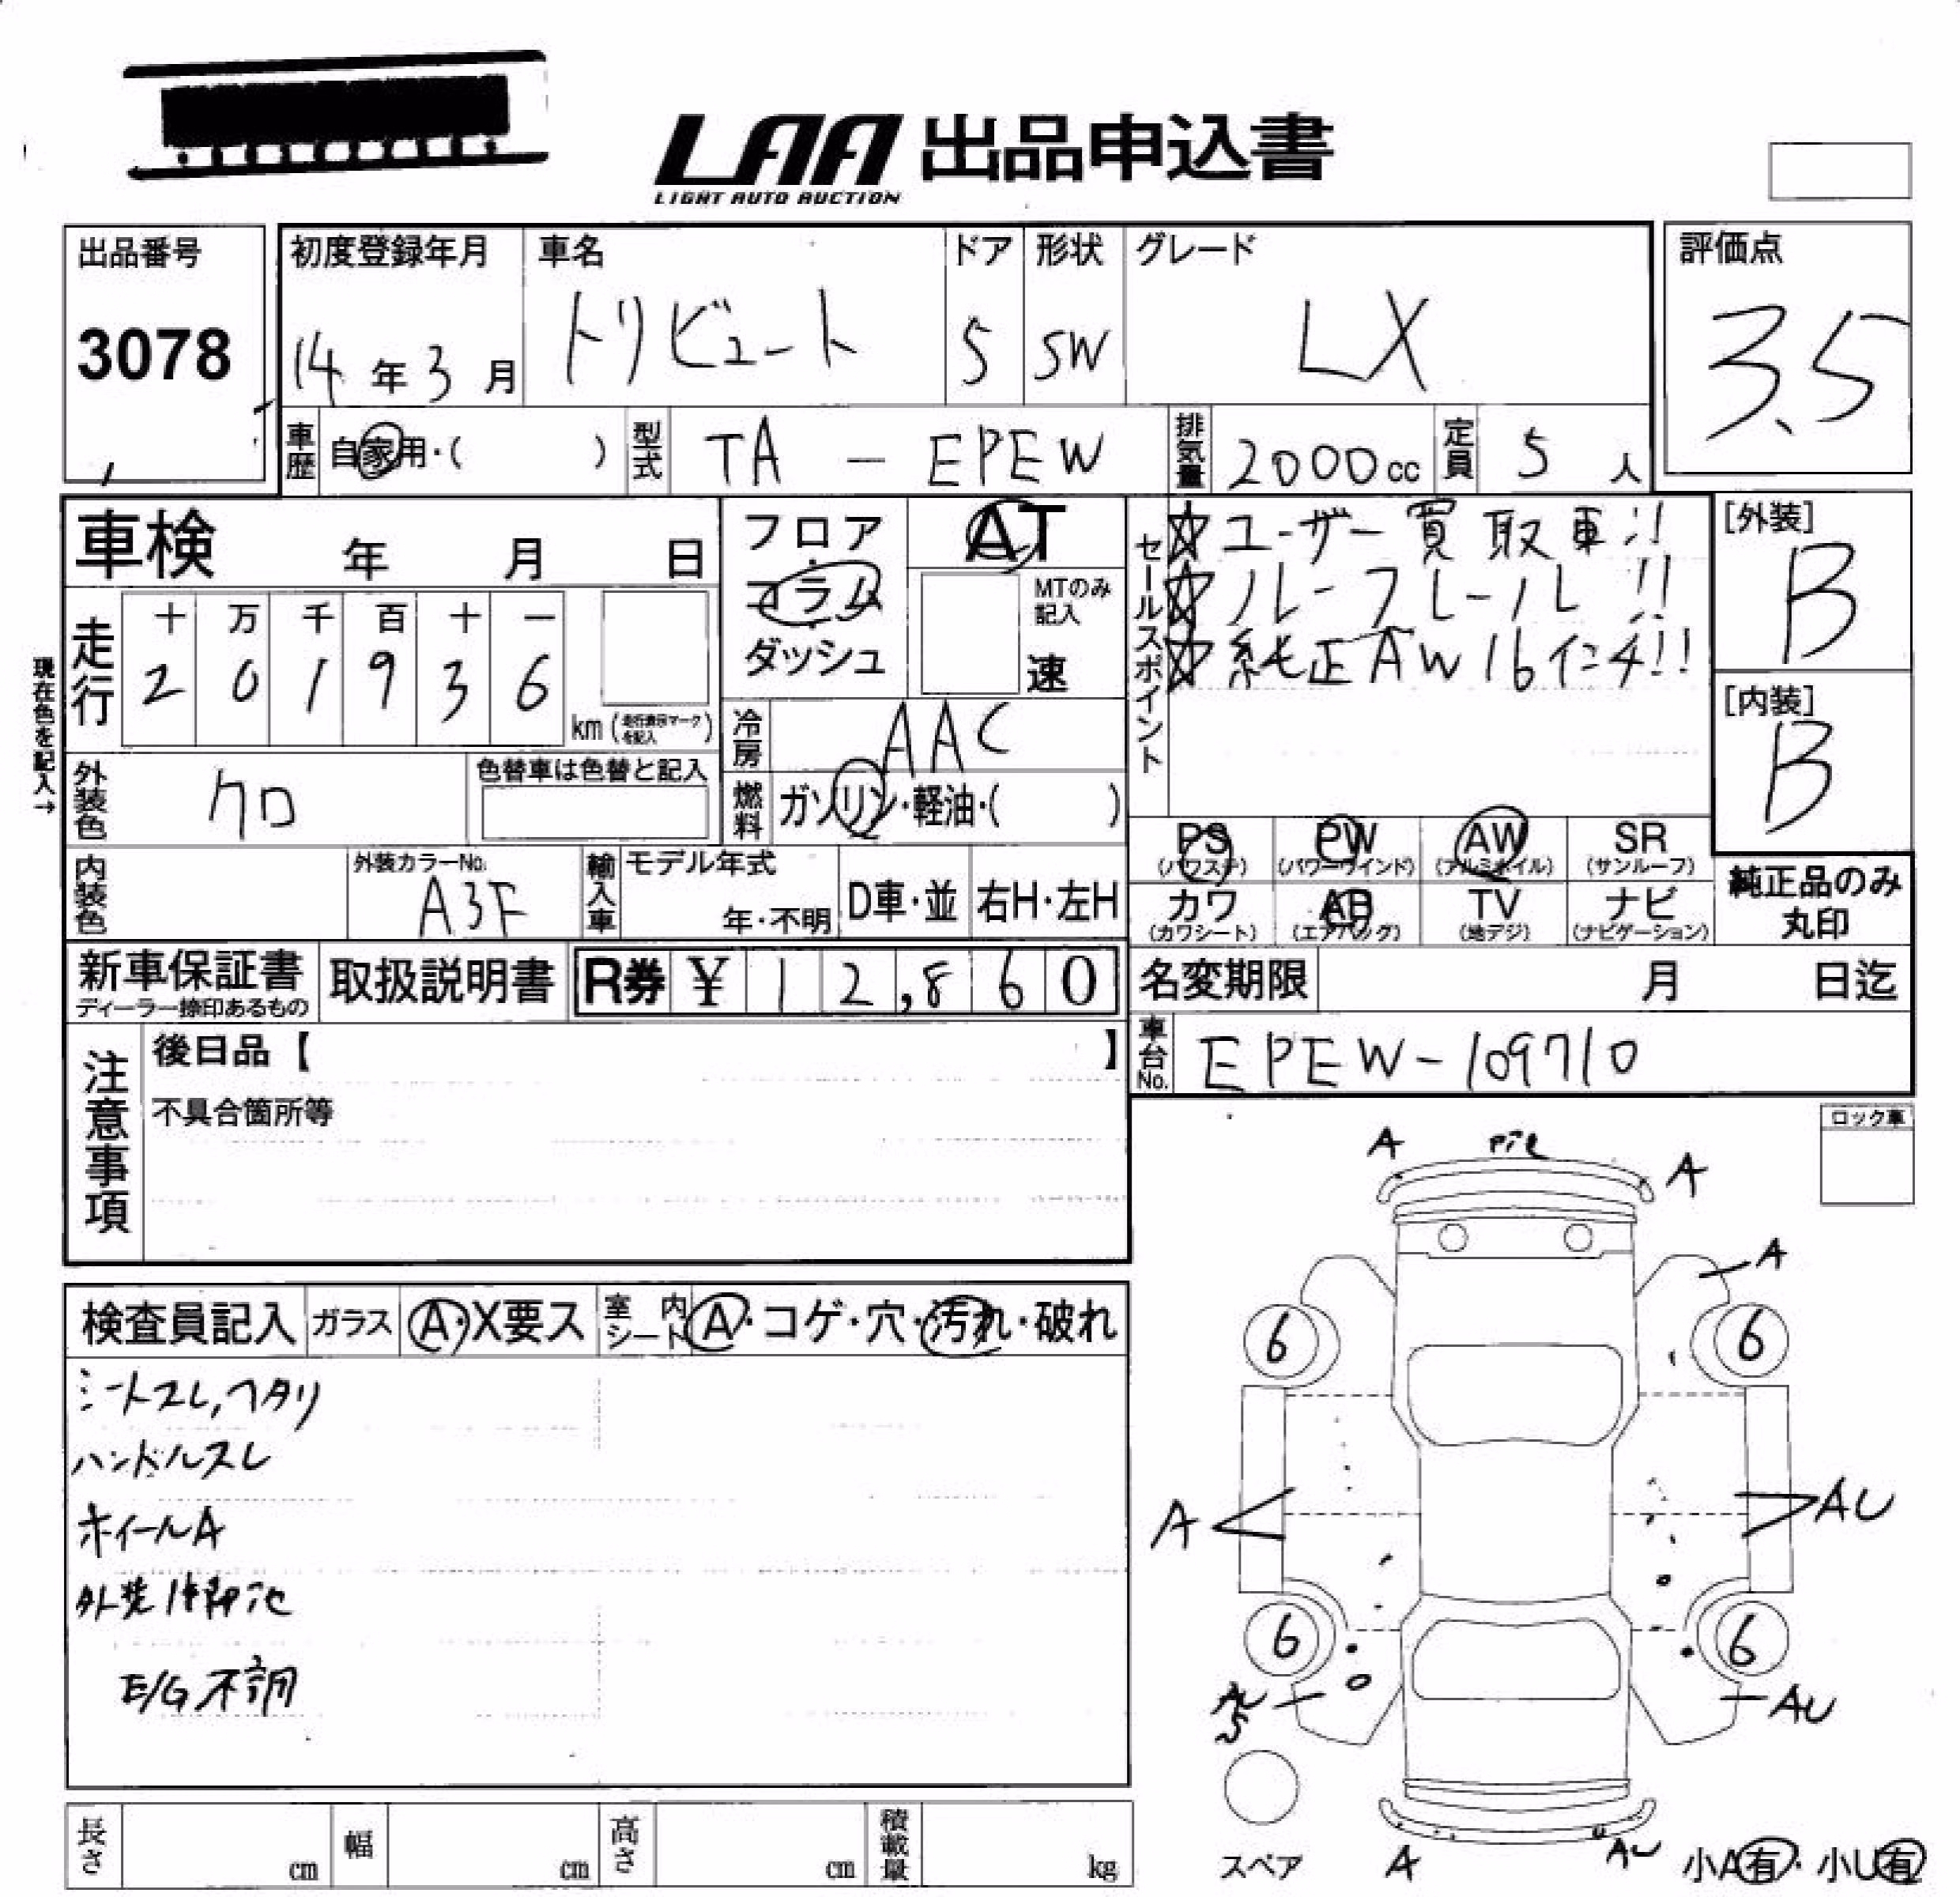 LAA 出品申込書
LIGHT AUTO AUCTION
出品番号
3078
初度登録年月
14年3月
車名
トリビュート
ドア
5
形状
SW
グレード
LX
評価点
3.5
車歴
自家用・( )
型式
TA - EPEW
排気量
2000cc
定員
5人
車検 年 月 日
フロア
コラム
ダッシュ
AT
MTのみ記入
速
セールスポイント
☆ユーザー買取車!!
☆ルーフレール!!
☆純正AW16インチ!!
[外装]
B
[内装]
B
現在色を記入→
走行
十 万 千 百 十 一
2 0 1 9 3 6
km(走行表示マークを記入)
冷房
AAC
燃料
ガソリン・軽油・( )
外装色
クロ
色替車は色替と記入
内装色
外装カラーNo.
A3F
輸入車
モデル年式
年・不明
D車・並
右H・左H
PS PW AW SR
(パワステ) (パワーウインド) (アルミホイル) (サンルーフ)
カワ AB TV ナビ
(カワシート) (エアバッグ) (地デジ) (ナビゲーション)
純正品のみ
丸印
新車保証書
ディーラー捺印あるもの
取扱説明書
R券 ¥12,860
名変期限 月 日迄
車台No.
EPEW-109710
注意事項
後日品【 】
不具合箇所等
ロック車
検査員記入
ガラス
A・X要ス
室内シート
A・コゲ・穴・汚れ・破れ
シートスレ,ヘタリ
ハンドルスレ
ホイールA
外装
E/G不調
A
A
A
6 6
A
AU
6 6
AU
S
AU
スペア
A
AU
小A有・小U有
長さ cm
幅 cm
高さ cm
積載量 kg